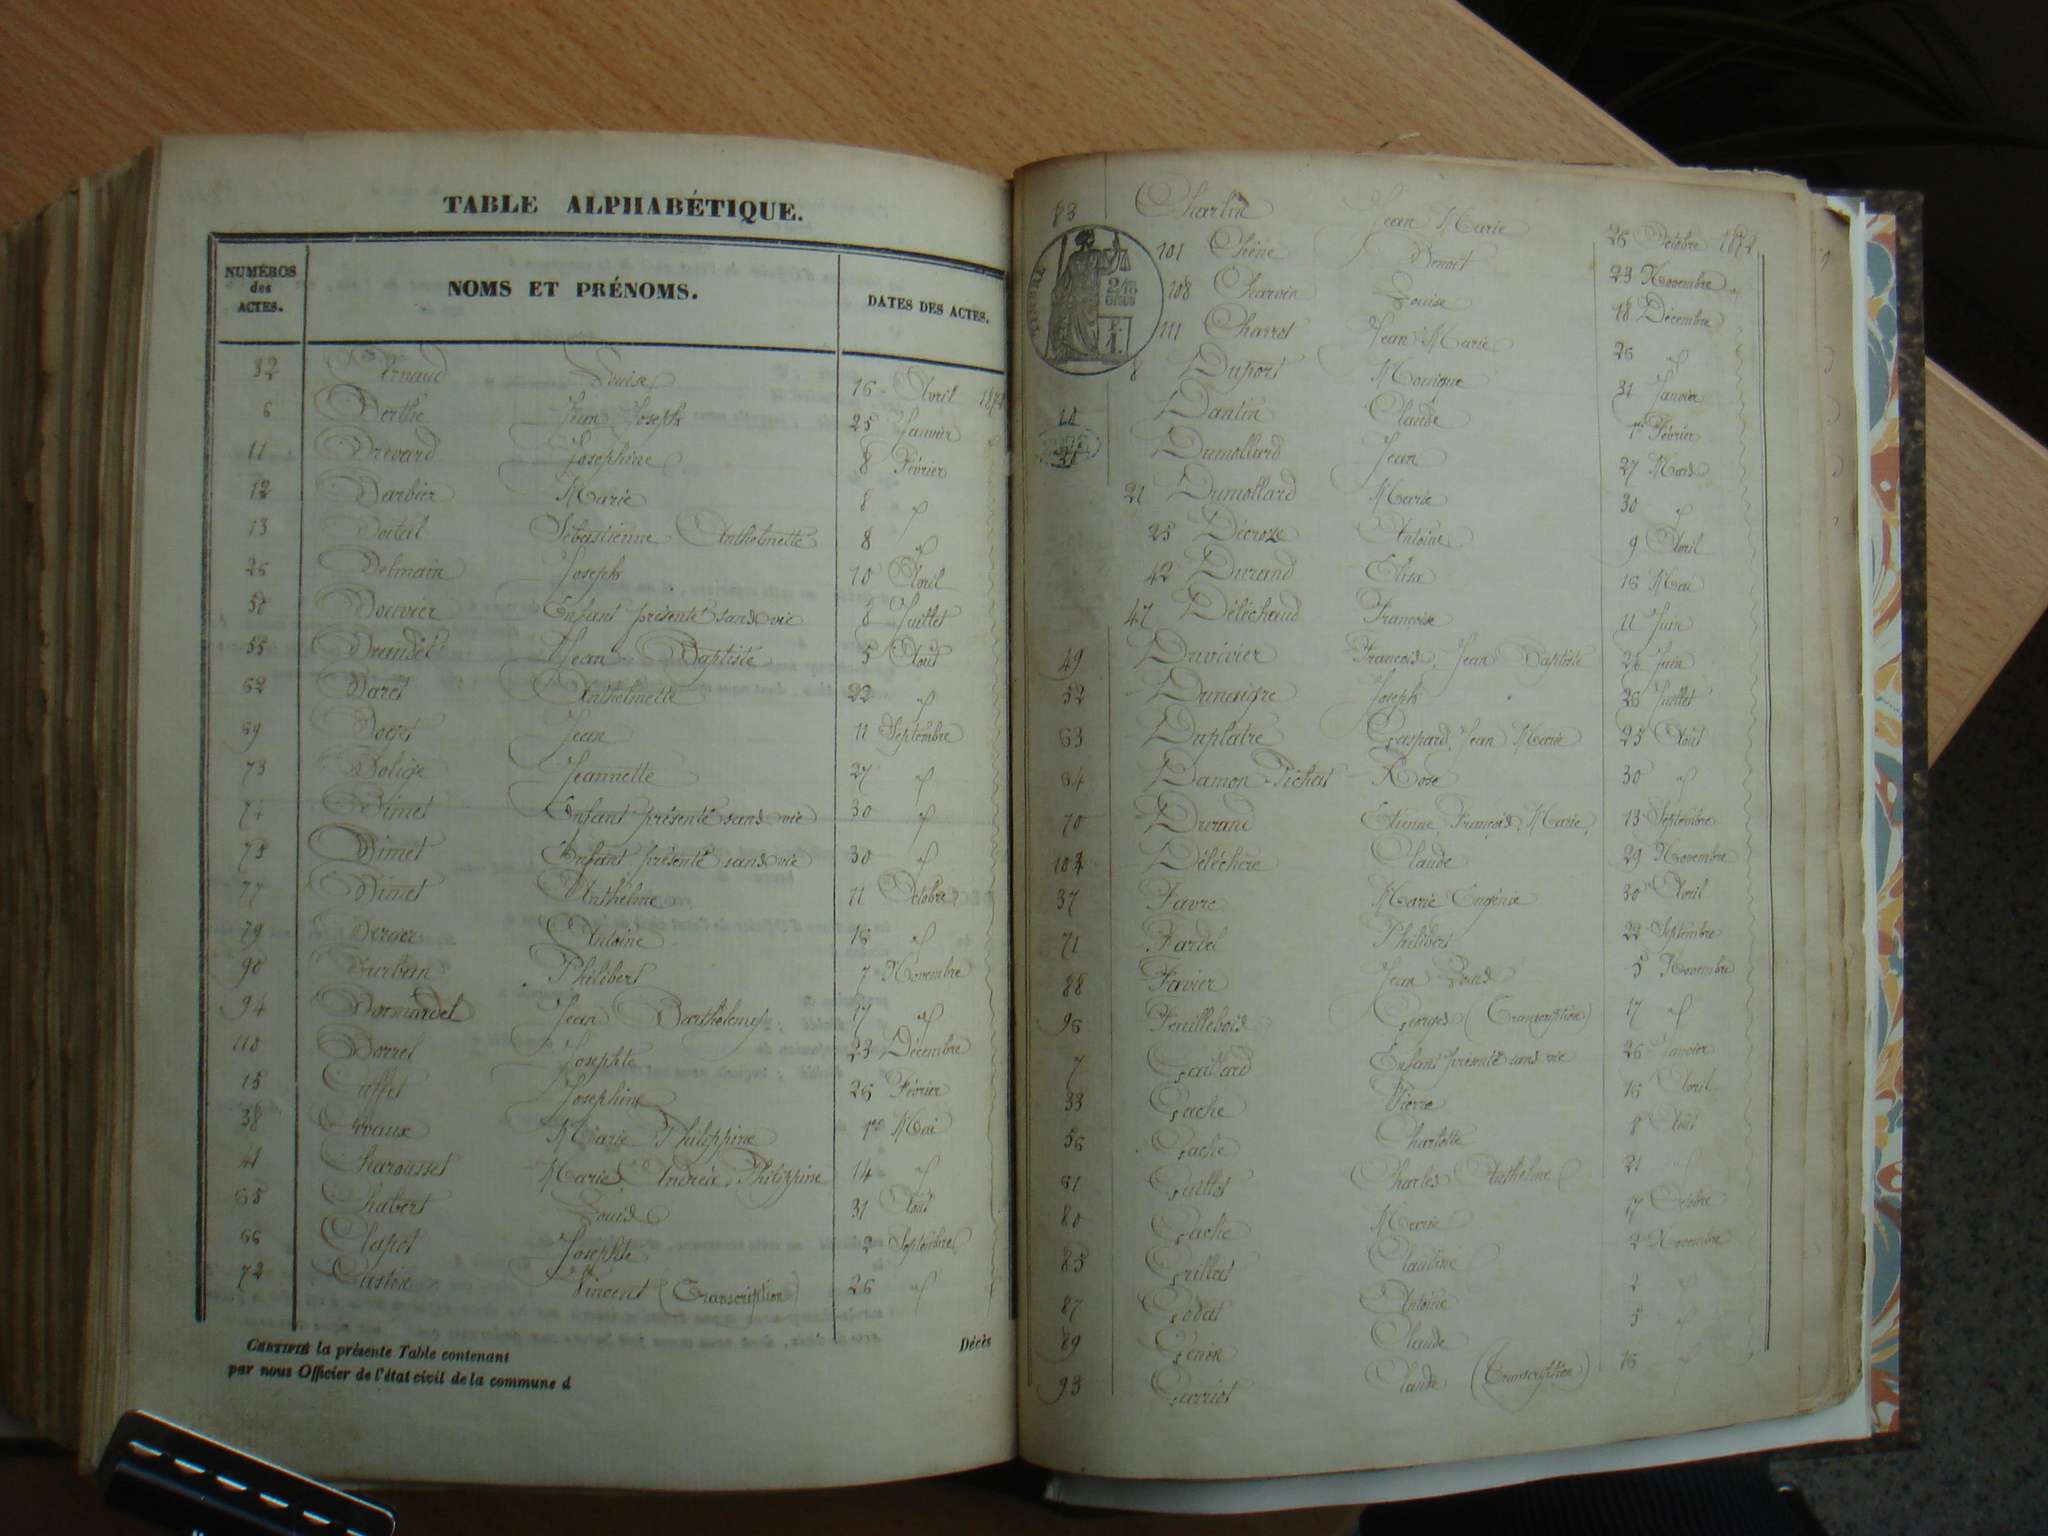 TABLE ALPHABÉTIQUE.
NUMÉROS des ACTES.
NOMS ET PRÉNOMS.
DATES DES ACTES.
32 Louise 16 Avril 1872
6 Berthe Jean Joseph 25 Janvier
11 Brevard Josephine 8 Février
12 Barbier Marie 8 "
13 Sébastienne Anthelmette 8 "
26 Belmain Joseph 10 Avril
50 Bouvier Enfant présenté sans vie 8 Juillet
55 Jean Baptiste 5 Août
62 Baret Anthelmette 22 "
69 Jean 11 Septembre
73 Bolige Jeannette 27 "
74 Bimet Enfant présenté sans vie 30 "
75 Bimet Enfant présenté sans vie 30 "
77 Bimet Anthelme 11 Octobre
79 Berger Antoine 16 "
90 Burban Philibert 7 Novembre
94 Bornardel Jean Barthélemy 17 "
110 Borrel Josephte 23 Décembre
15 Cuffet Josephine 26 Février
38 Marie Philippine 1er Mai
41 Charousset Marie Andréa Philippine 14 "
65 Chabert Louis 31 Août
66 Clapot Josephte 2 Septembre
72 Vincent (Transcription) 26 "
CERTIFIÉ la présente Table contenant
par nous Officier de l'état civil de la commune d
Décès
83 Charlin Jean Marie 26 Octobre 1872
TIMBRE
101 Chêne Benoit 23 Novembre
108 Charvin Louise 18 Décembre
111 Charrot Jean Marie 26 "
8 Duport Monique 31 Janvier
Dantin Claude 1er Février
Dumollard Jean 27 Mars
21 Dumollard Marie 30 "
25 Décroze Antoine 9 Avril
42 Durand Elisa 16 Mai
47 Déléchaud Françoise 11 Juin
49 Duvivier François, Jean Baptiste 24 Juin
52 Dunaigre Joseph 26 Juillet
63 Duplatre Gaspard, Jean Marie 25 Août
64 Damon Pichat Rose 30 "
70 Durand Etienne, François, Marie, 13 Septembre
Déléchère Claude 29 Novembre
37 Favre Marie Eugénie 30 Avril
71 Fardel Philibert 22 Septembre
88 Favier Jean Louis 5 Novembre
96 Feuillebois Georges (Transcription) 17 "
7 Gaillard Enfant présenté sans vie 26 Janvier
33 Gache Pierre 16 Avril
56 Gache Charlotte 8 Août
61 Guillot Charles Anthelme 21 "
80 Gache Marie 17 Octobre
85 Grillet Claudine 2 Novembre
87 Godat Antoine 2 "
89 Claude 5 "
93 Garriot Claude (Transcription) 16 "